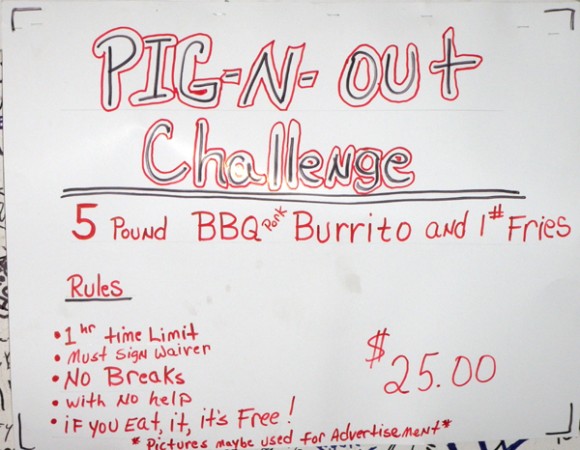 PIG-N-OUt
Challenge
5 Pound BBQ Pork Burrito and 1# Fries
Rules
• 1hr time Limit
• Must Sign Waiver
• No Breaks
• With No help
• iF You Eat, it, it's Free!
$25.00
*Pictures maybe used for Advertisement*